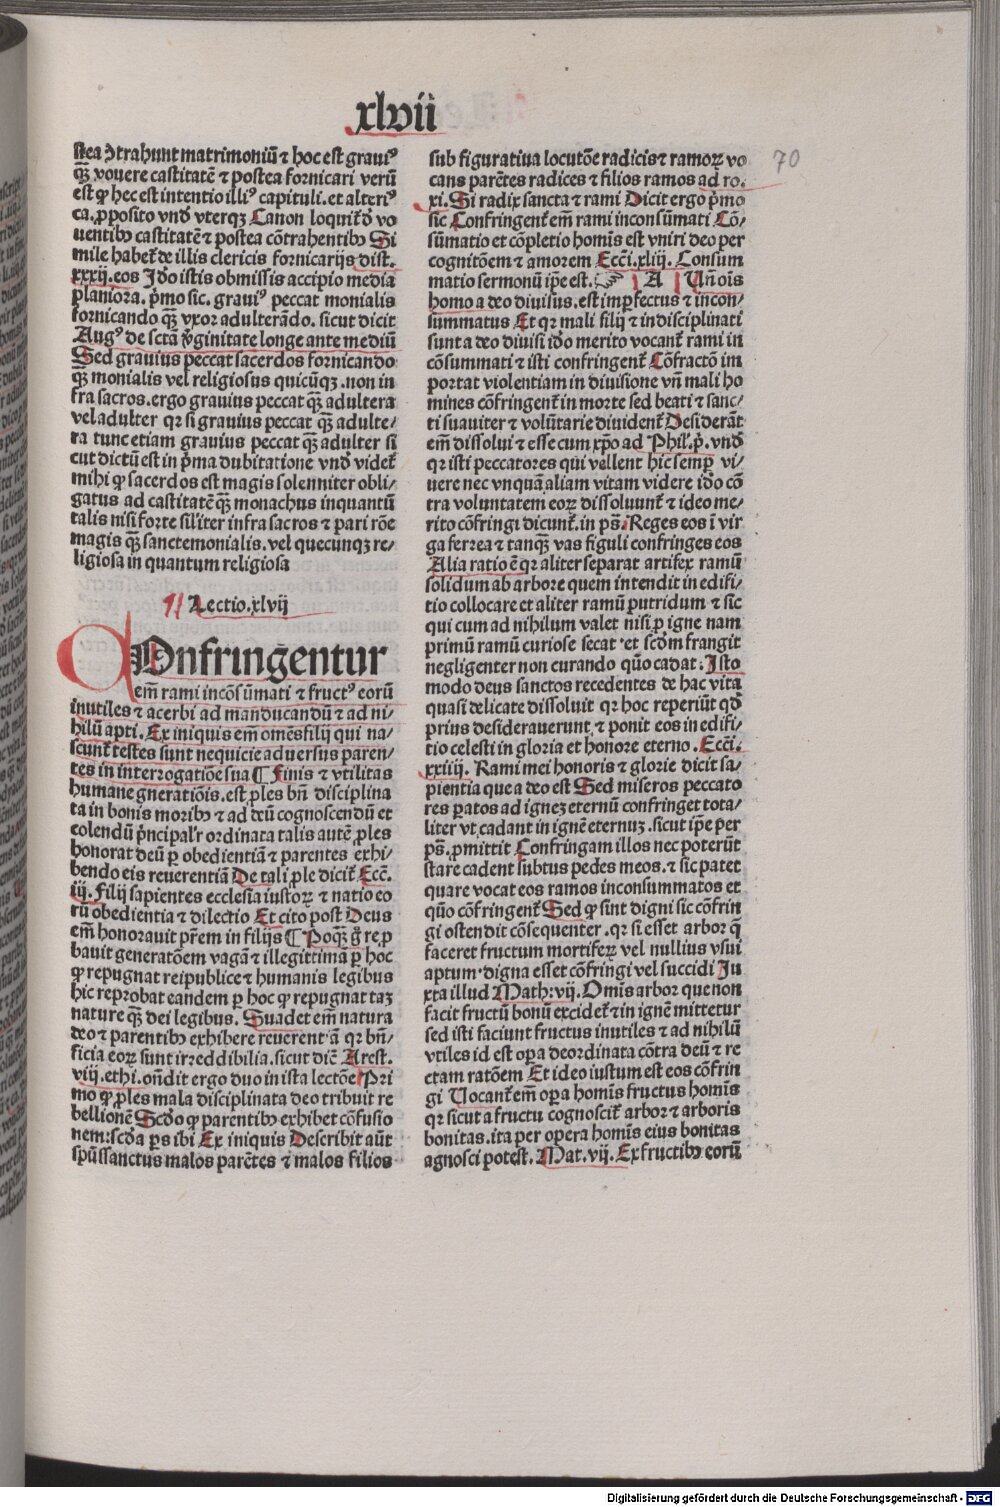 xlvii
70
stea ɔ̄trahunt matrimoniū ⁊ hoc est grauiꝰ
q̄ꝫ vouere castitatē ⁊ postea fornicari verū
est ꝙ hec est intentio illiꝰ capituli. et alteriꝰ
ca. ꝓposito vnd̄ vterqꝫ Canon loquit̄ d̄ vo
uentibꝰ castitatē ⁊ postea cōtrahentibꝰ Si
mile habet̄ de illis clericis fornicarijs dist.
xxxij. eos Jdo istis obmissis accipio media
planiora. p̄mo sic. grauiꝰ peccat monialis
fornicando q̄ꝫ vxor adulterādo. sicut dicit
Augꝰ de sctā v̄ginitate longe ante mediū
Sed grauius peccat sacerdos fornicando
q̄ꝫ monialis vel religiosus quicūqꝫ .non in
fra sacros. ergo grauius peccat q̄ꝫ adultera
vel adulter qr si grauius peccat q̄ꝫ adulte⸗
ra tunc etiam grauius peccat q̄ꝫ adulter si
cut dictū est in p̄ma dubitatione vnd̄ videt̄
mihi ꝙ sacerdos est magis solenniter obli⸗
gatus ad castitatē q̄ꝫ monachus inquantū
talis nisi forte sil'iter infra sacros ⁊ pari rōe
magis q̄ꝫ sanctemonialis. vel quecunqꝫ re⸗
ligiosa in quantum religiosa
¶ Lectio .xlvij
COnfringentur
em̄ rami incōsūmati ⁊ fructꝰ eorū
inutiles ⁊ acerbi ad manducandū ⁊ ad ni⸗
hilū apti. Ex iniquis em̄ om̄es filij qui na⸗
scunt̄ testes sunt nequicie aduersus paren⸗
tes in interrogatiōe sua ¶ Finis ⁊ vtilitas
humane gneratiōis. est ꝓles bn̄ disciplina
ta in bonis moribꝰ ⁊ ad deū cognoscendū et
colendū p̄ncipal'r ordinata talis autē ꝓles
honorat deū ꝑ obedientiā ⁊ parentes exhi⸗
bendo eis reuerentiā De tali ꝓle dicit̄ Ecc̄.
iij. Filij sapientes ecclesia iustoꝝ ⁊ natio eo
rū obedientia ⁊ dilectio Et cito post Deus
em̄ honorauit pr̄em in filijs ¶ Poqꝫ gͥ reꝓ
bauit generatōem vagā ⁊ illegittimā ꝑ hoc
ꝙ repugnat reipublice ⁊ humanis legibus
hic reprobat eandem ꝑ hoc ꝙ repugnat taꝫ
nature q̄ꝫ dei legibus. Suadet em̄ natura
deo ⁊ parentibꝰ exhibere reuerent'ā qr bn̄⸗
ficia eoꝝ sunt irreddibilia. sicut dic̄ Arest.
viij. ethi. on̄dit ergo duo in ista lectōe Pri
mo ꝙ ꝓles mala disciplinata deo tribuit re
bellionē Scd̄o ꝙ parentibꝰ exhibet cōfusio
nem: scd̄a ps ibi Ex iniquis Describit aūt
spūssanctus malos parētes ⁊ malos filios
sub figuratiua locutōe radicis ⁊ ramoꝝ vo
cans parētes radices ⁊ filios ramos ad ro.
xi. Si radix sancta ⁊ rami Dicit ergo p̄mo
sic Confringent̄ em̄ rami inconsūmati Cō⸗
sūmatio et cōpletio homīs est vniri deo per
cognitōem ⁊ amorem Ecc̄i. xliij. Consum
matio sermonū ip̄e est. ☞ A Vn̄ oīs
homo a deo diuisus. est imꝑfectus ⁊ incon⸗
summatus Et qr mali filij ⁊ indisciplinati
sunt a deo diuisi ido merito vocant̄ rami in
cōsummati ⁊ isti confringent̄ Cōfractō im
portat violentiam in diuisione vn̄ mali ho
mines cōfringent̄ in morte sed beati ⁊ sanc⸗
ti suauiter ⁊ volūtarie diuident̄ Desiderāt
em̄ dissolui ⁊ esse cum xp̄o ad Phil'. p̄. vnd̄
qr isti peccatores qui vellent hic semꝑ vi⸗
uere nec vnquā aliam vitam videre ido cō
tra voluntatem eoꝝ dissoluunt̄ ⁊ ideo me⸗
rito cōfringi dicunt̄. in ps̄. Reges eos ī vir
ga ferrea ⁊ tanq̄ꝫ vas figuli confringes eos
Alia ratio ē qr aliter separat artifex ramū
solidum ab arbore quem intendit in edifi⸗
tio collocare et aliter ramū putridum ⁊ sic
qui cum ad nihilum valet nisi ꝑ igne nam
primū ramū curiose secat ·et scd̄m frangit
negligenter non curando quō cadat. Jsto
modo deus sanctos recedentes de hac vita
quasi delicate dissoluit qr hoc reperiūt qd̄
prius desiderauerunt ⁊ ponit eos in edifi⸗
tio celesti in gloria et honore eterno. Ecc̄i.
xxiiij. Rami mei honoris ⁊ glorie dicit sa⸗
pientia que a deo est Sed miseros peccato
res ꝑatos ad igneꝫ eternū confringet tota⸗
liter vt cadant in ignē eternuꝫ .sicut ip̄e per
ps̄. ꝓmittit Confringam illos nec poterūt
stare cadent subtus pedes meos. ⁊ sic patet
quare vocat eos ramos inconsummatos et
quō cōfringent̄ Sed ꝙ sint digni sic cōfrin
gi ostendit cōsequenter .qr si esset arbor q̄
faceret fructum mortiferꝫ vel nullius vsui
aptum · digna esset cōfringi vel succidi Ju
xta illud Math. vij. Om̄is arbor que non
facit fructū bonū excidet̄ ⁊ in ignē mittetur
sed isti faciunt fructus inutiles ⁊ ad nihilū
vtiles id est oꝑa deordinata cōtra deū ⁊ re
ctam ratōem Et ideo iustum est eos cōfrin
gi Vocant̄ em̄ oꝑa homīs fructus homīs
qr sicut a fructu cognoscit̄ arbor ⁊ arboris
bonitas .ita per opera homīs eius bonitas
agnosci potest. Mat. vij. Ex fructibꝰ eorū
Digitalisierung gefördert durch die Deutsche Forschungsgemeinschaft - DFG